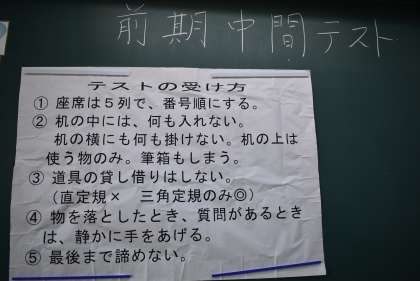 前期中間テスト
テストの受け方
① 座席は５列で、番号順にする。
② 机の中には、何も入れない。
机の横にも何も掛けない。机の上は
使う物のみ。筆箱もしまう。
③ 道具の貸し借りはしない。
（直定規×　三角定規のみ◎）
④ 物を落としたとき、質問があるとき
は、静かに手をあげる。
⑤ 最後まで諦めない。